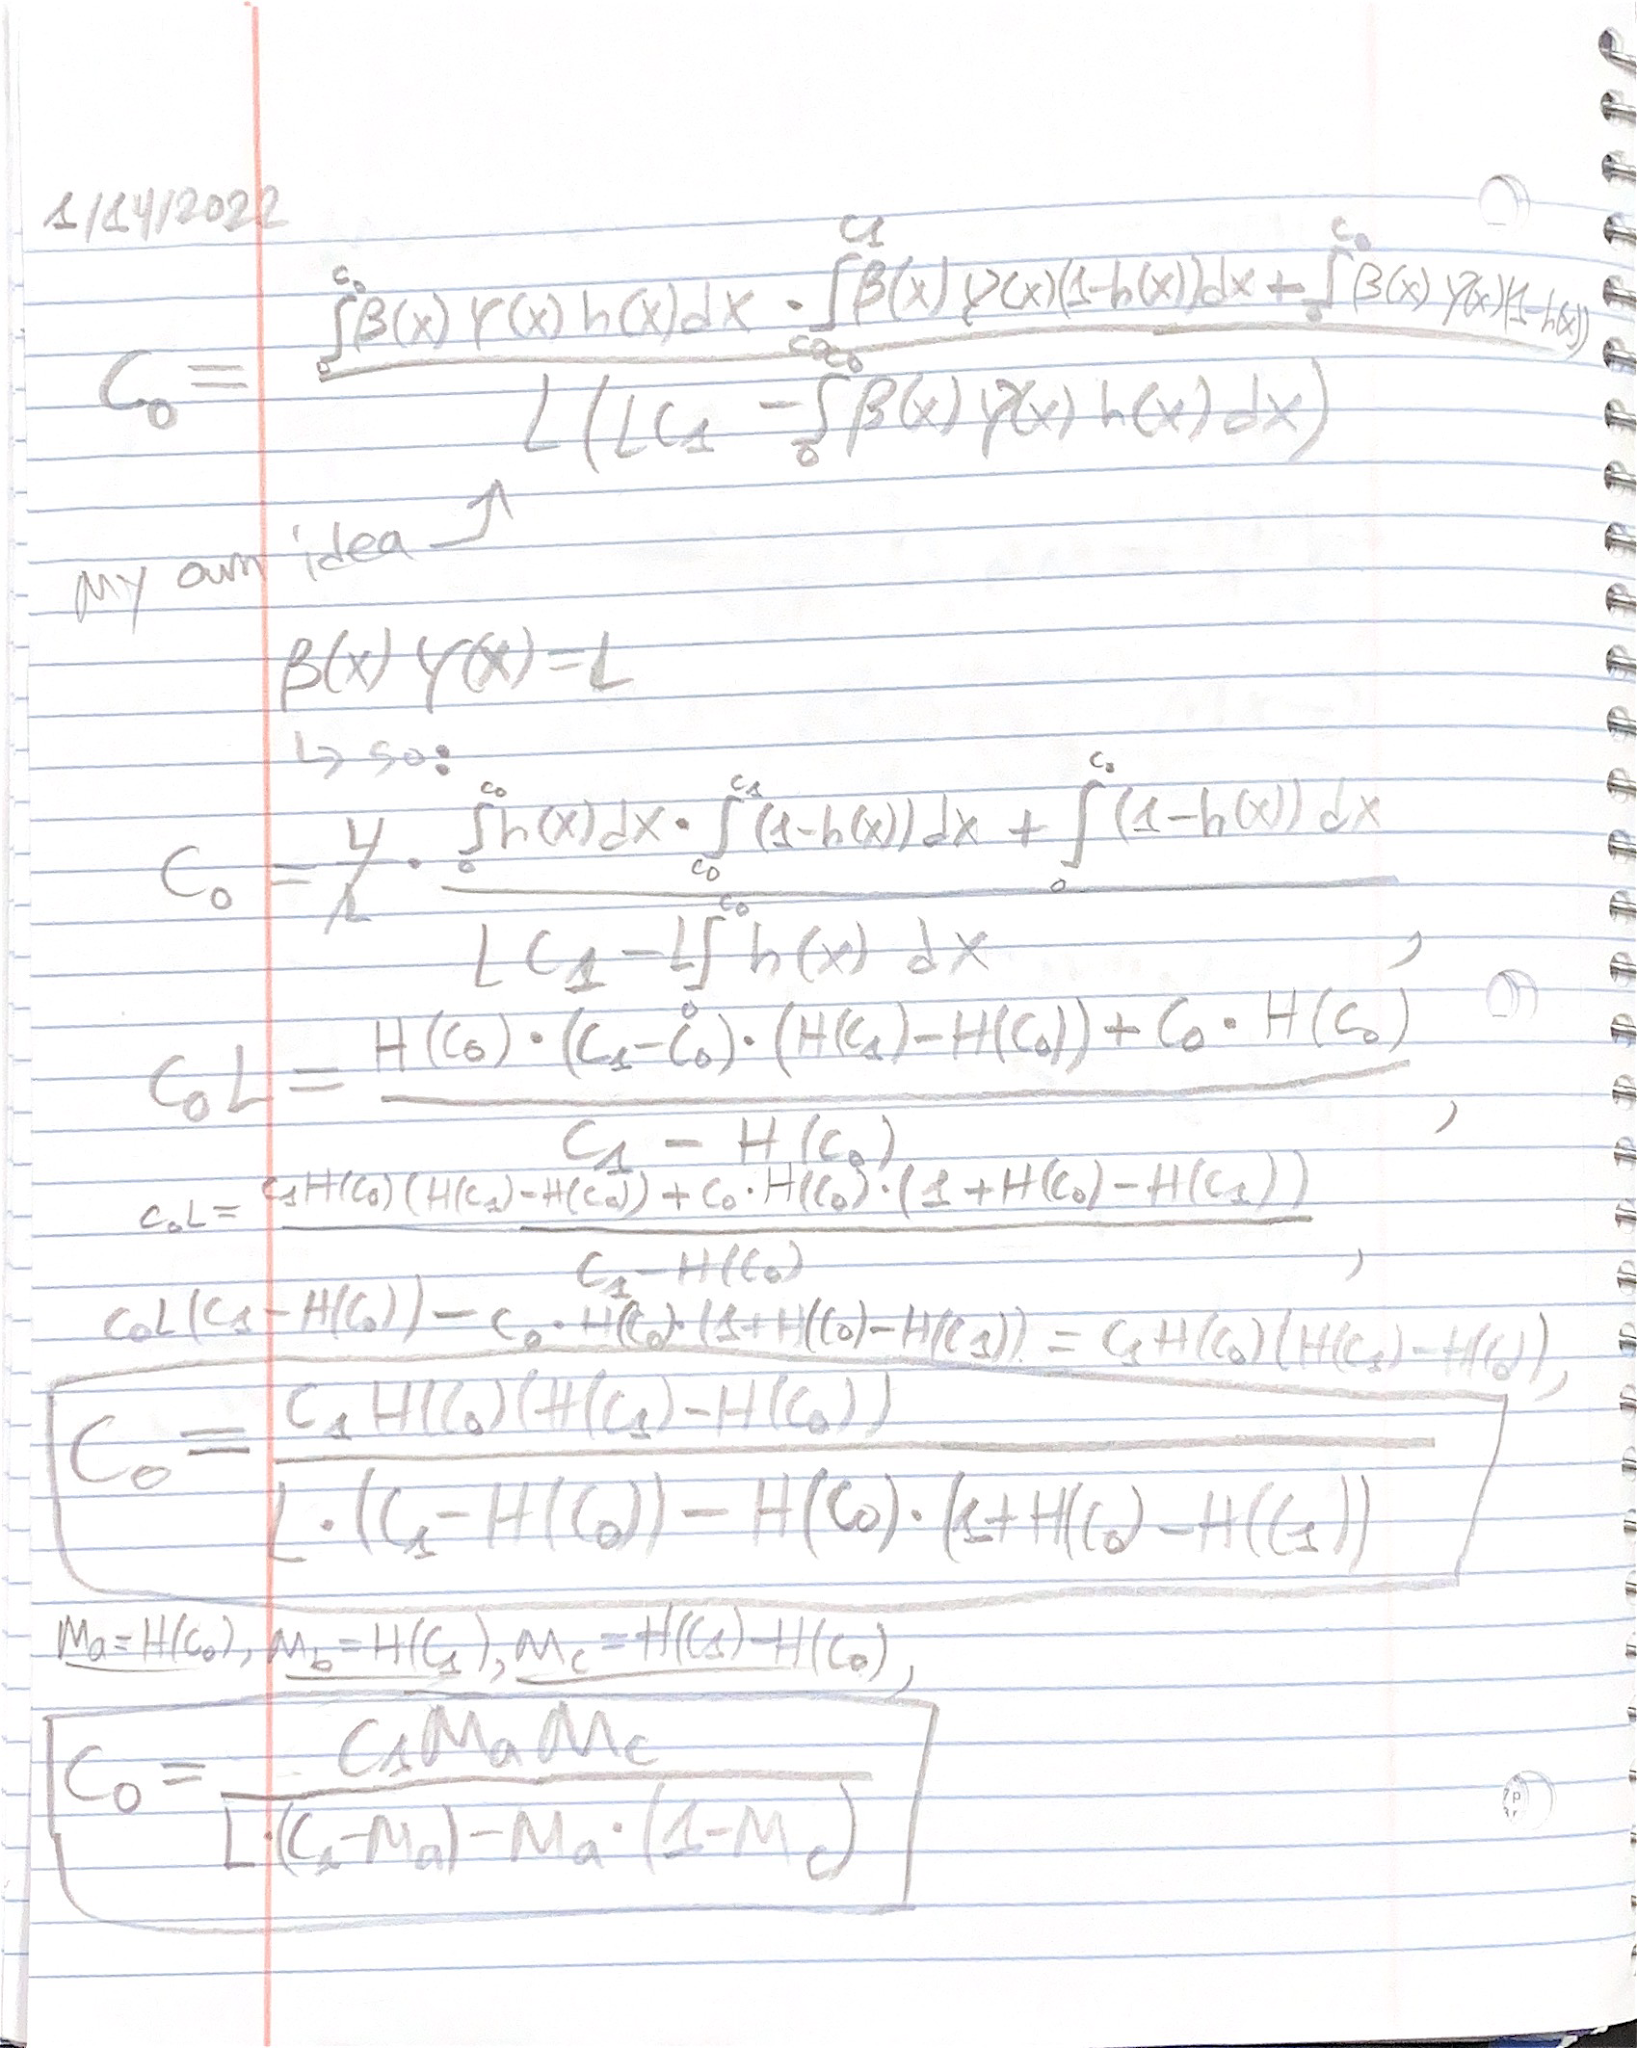 1/14/2022
C₀ = (∫₀^C₀ β(x) γ(x) h(x) dx · ∫_C₀^C1 β(x) γ(x)(1-h(x)) dx + ∫₀^C₀ β(x) γ(x)(1-h(x))) / (L(LC₁ - ∫₀^C₀ β(x) γ(x) h(x) dx))
My own idea ↗
β(x) γ(x) = L
↳ so:
C₀ = L/L · (∫₀^C₀ h(x) dx · ∫_C₀^C1 (1-h(x)) dx + ∫₀^C₀ (1-h(x)) dx) / (LC₁ - L∫₀^C₀ h(x) dx) ,
C₀L = (H(C₀) · (C₁-C₀) · (H(C₁)-H(C₀)) + C₀ · H(C₀)) / (C₁ - H(C₀)) ,
C₀L = (C₁H(C₀)(H(C₁)-H(C₀)) + C₀ · H(C₀) · (1+H(C₀)-H(C₁))) / (C₁-H(C₀)) ,
C₀L(C₁-H(C₀)) - C₀ · H(C₀) · (1+H(C₀)-H(C₁)) = C₁H(C₀)(H(C₁)-H(C₀)),
C₀ = (C₁ H(C₀)(H(C₁)-H(C₀))) / (L · (C₁-H(C₀)) - H(C₀) · (1+H(C₀)-H(C₁)))
Ma = H(C₀), Mb = H(C₁), Mc = H(C₁)-H(C₀),
C₀ = (C₁MaMc) / (L · (C₁-Ma) - Ma · (1-Mc))